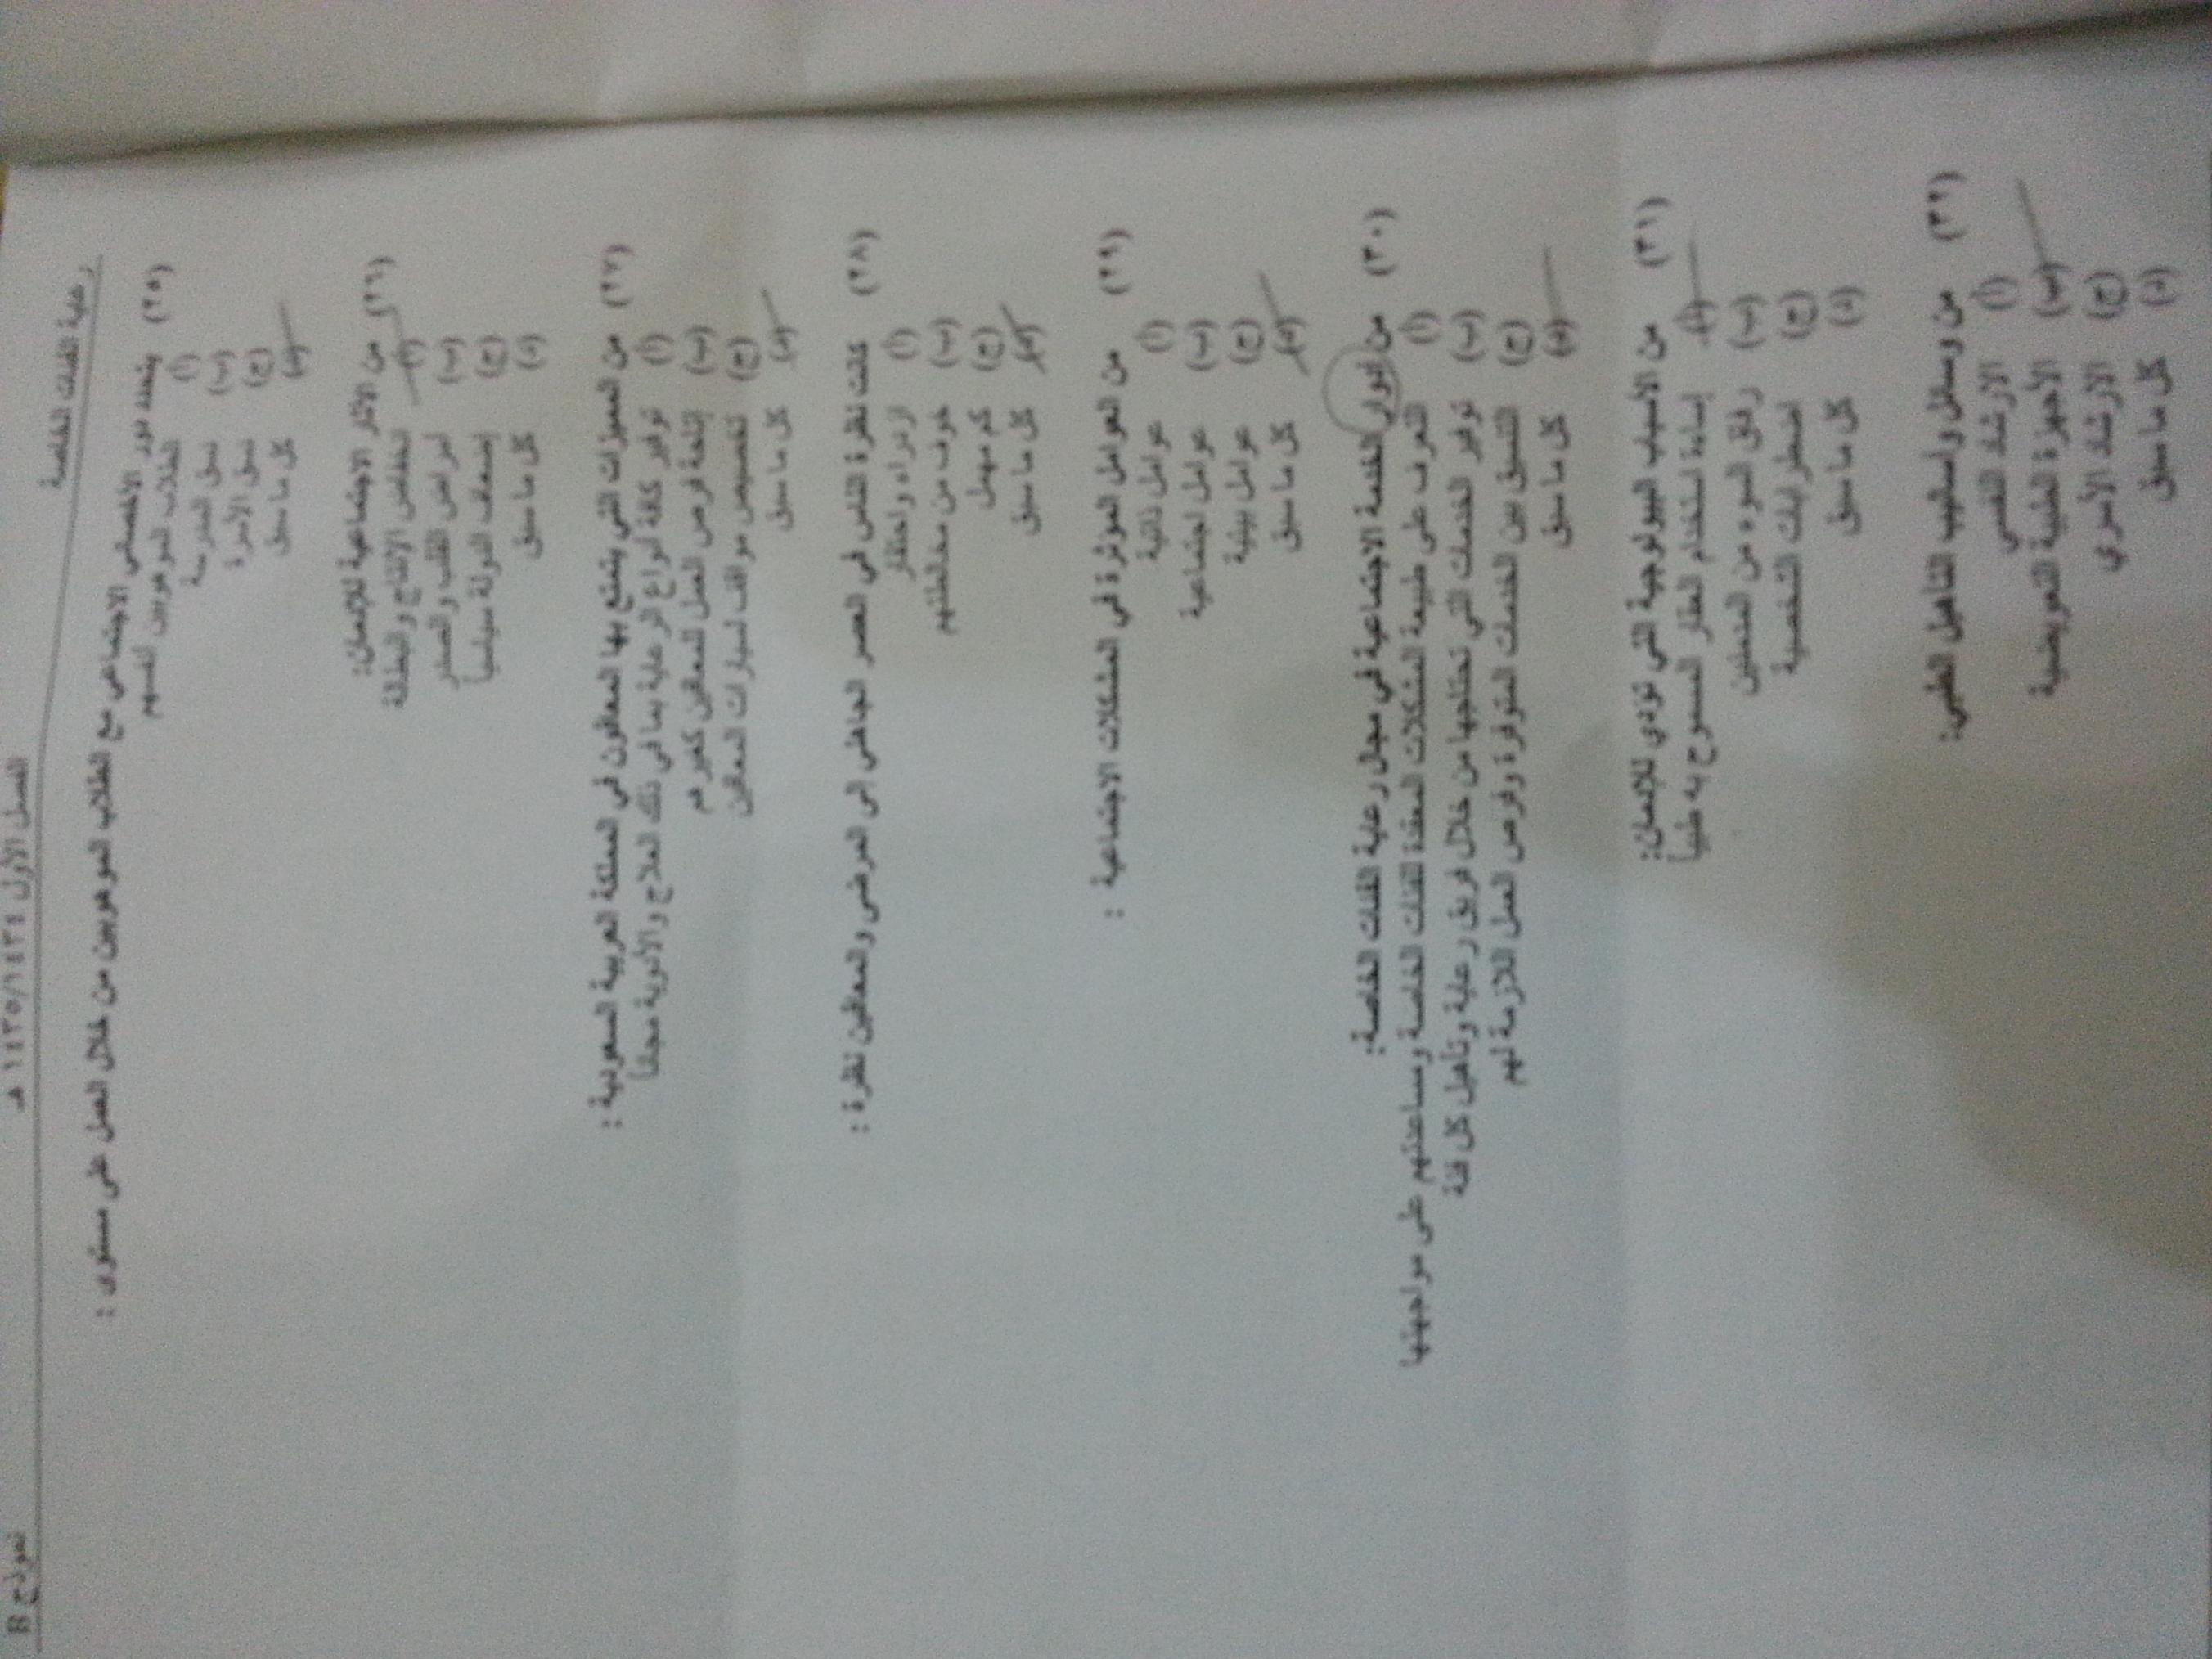 نموذج B
الفصل الأول ١٤٣٥/١٤٣٤ هـ
رعاية الفئات الخاصة
(٢٥) يتحدد دور الأخصائي الاجتماعي مع الطلاب الموهوبين من خلال العمل على مستوى :
(أ) الطلاب الموهوبين أنفسهم
(ب) نسق المدرسة
(ج) نسق الأسرة
(د) كل ما سبق
(٢٦) من الآثار الاجتماعية للإدمان:
(أ) انخفاض الإنتاج والبطالة
(ب) أمراض القلب والصدر
(ج) إضعاف الدولة سياسياً
(د) كل ما سبق
(٢٧) من المميزات التي يتمتع بها المعاقون في المملكة العربية السعودية :
(أ) توفير كافة أنواع الرعاية بما في ذلك العلاج والأدوية مجاناً
(ب) إتاحة فرص العمل للمعاقين كغيرهم
(ج) تخصيص مواقف لسيارات المعاقين
(د) كل ما سبق
(٢٨) كانت نظرة الناس في العصر الجاهلي إلى المرضى والمعاقين نظرة :
(أ) ازدراء واحتقار
(ب) خوف من مخالطتهم
(ج) كم مهمل
(د) كل ما سبق
(٢٩) من العوامل المؤثرة في المشكلات الاجتماعية :
(أ) عوامل ذاتية
(ب) عوامل اجتماعية
(ج) عوامل بيئية
(د) كل ما سبق
(٣٠) من أدوار الخدمة الاجتماعية في مجال رعاية الفئات الخاصة:
(أ) التعرف على طبيعة المشكلات المعقدة للفئات الخاصة ومساعدتهم على مواجهتها
(ب) توفير الخدمات التي تحتاجها من خلال فريق رعاية وتأهيل كل فئة
(ج) التنسيق بين الخدمات المتوفرة وفرص العمل اللازمة لهم
(د) كل ما سبق
(٣١) من الأسباب البيولوجية التي تؤدي للإدمان:
(أ) إساءة استخدام العقار المسموح به طبياً
(ب) رفاق السوء من المدمنين
(ج) اضطرابات الشخصية
(د) كل ما سبق
(٣٢) من وسائل وأساليب التأهيل الطبي:
(أ) الارشاد النفسي
(ب) الأجهزة الطبية التعويضية
(ج) الارشاد الأسري
(د) كل ما سبق